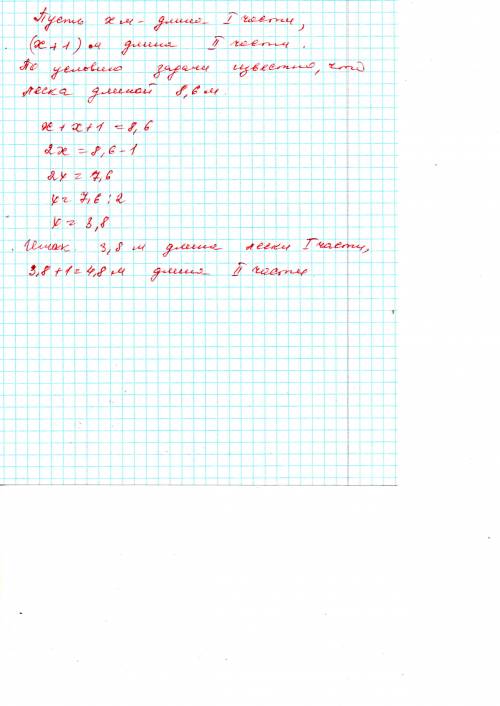 Пусть x м - длина I части,
(x+1) м длина II части.
По условию задачи известно, что
леска длиной 8,6 м.
x + x + 1 = 8,6
2x = 8,6 - 1
2x = 7,6
x = 7,6 : 2
x = 3,8
Итак 3,8 м длина лески I части,
3,8 + 1 = 4,8 м длина II части